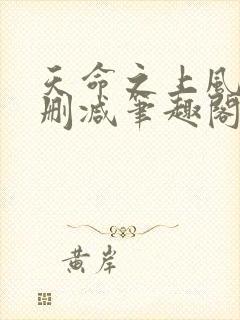 天命之上风
删减笔趣阁
黄岸